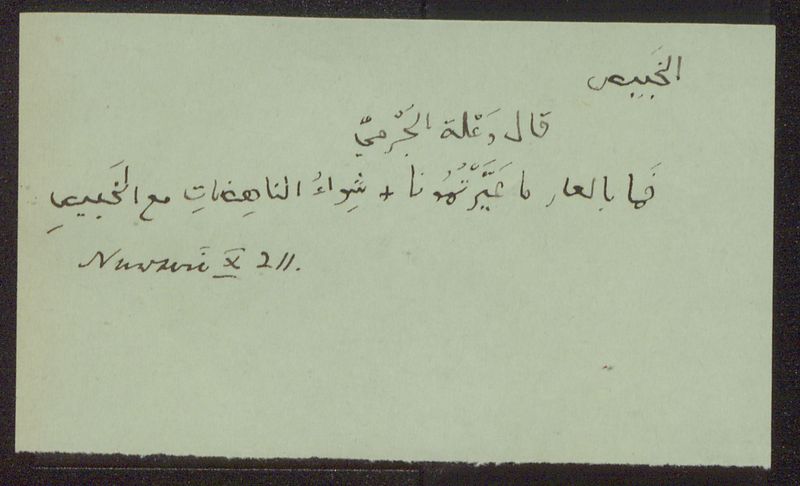 الخَبِيص
قال وَعْلة الجَرْميّ
فَما بالعار ما عَيَّرْتُمُونا + شِواءُ الناهِضاتِ مع الخَبيصِ
Nuwairī X 211.